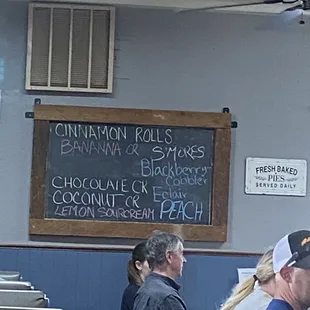 CINNAMON ROLLS
BANANNA CR
S'MORES
Blackberry
Cobbler
Eclair
CHOCOLATE CR
COCONUT CR
LEMON SOURCREAM
PEACH
FRESH BAKED
PIES
SERVED DAILY